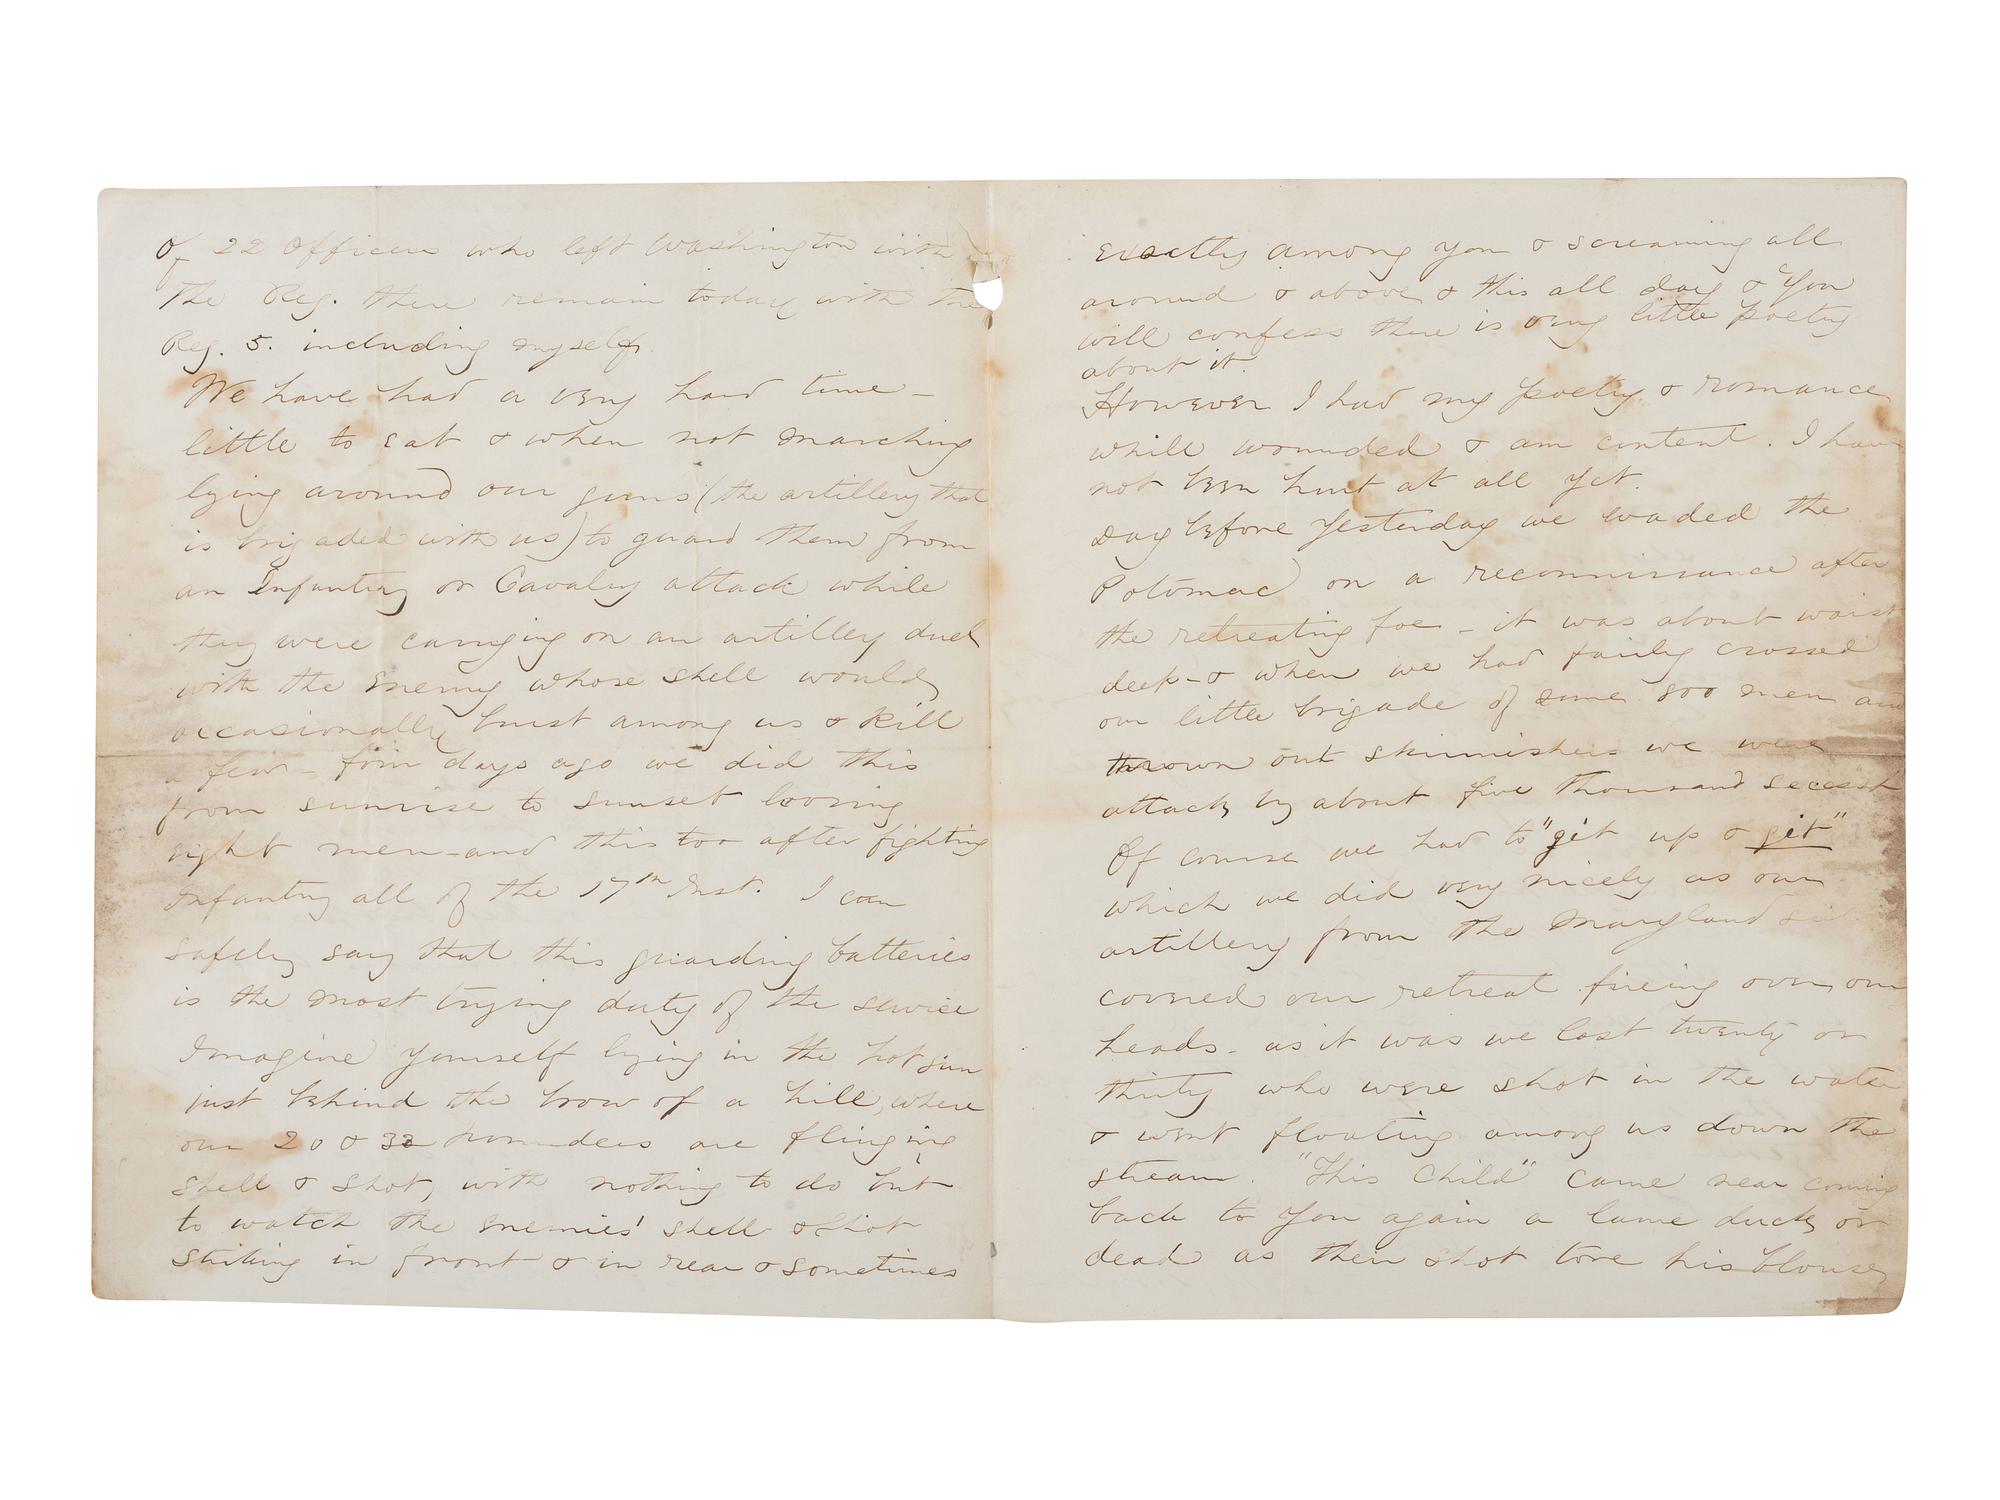 Of 22 Officers who left Washington with
the Reg. there remain today with the
Reg. 5. including myself.
We have had a very hard time –
little to eat & when not marching
lying around our guns (the artillery that
is brigaded with us) to guard them from
an Infantry or Cavalry attack while
they were carrying on an artillery duel
with the Enemy whose shell would
occasionally burst among us & kill
a few – four days ago we did this
from sunrise to sunset loosing
eight men – and this too after fighting
Infantry all of the 17th Inst. I can
safely say that this guarding batteries
is the most trying duty of the service
Imagine yourself lying in the hot sun
just behind the brow of a hill, where
our 20 & 32 pounders are flinging
shell & shot, with nothing to do but
to watch the enemies' shell & shot
striking in front & in rear & sometimes
exactly among you & screaming all
around & above & this all day & you
will confess there is very little poetry
about it.
However I had my poetry & romance
while wounded & am content. I have
not been hurt at all yet.
Day before yesterday we waded the
Potomac on a reconnissance after
the retreating foe – it was about waist
deep – & when we had fairly crossed
our little brigade of some 800 men and
thrown out skirmishers we were
attack by about five thousand secesh
Of course we had to "git up & git"
which we did very nicely as our
artillery from the Maryland side
covered our retreat fireing over our
heads – as it was we lost twenty or
thirty who were shot in the water
& went floating among us down the
stream. "This Child" came near coming
back to you again a lame duck or
dead as their shot tore his blouse